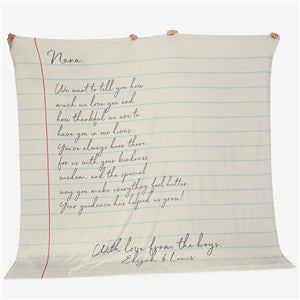 Nana,
We want to tell you how
much we love you and
how thankful we are to
have you in our lives
You've always been there
for us with your kindness,
wisdom, and the special
way you make everything feel better.
Your guidance has helped us grow!
With love from the boys,
Elijah & Louis